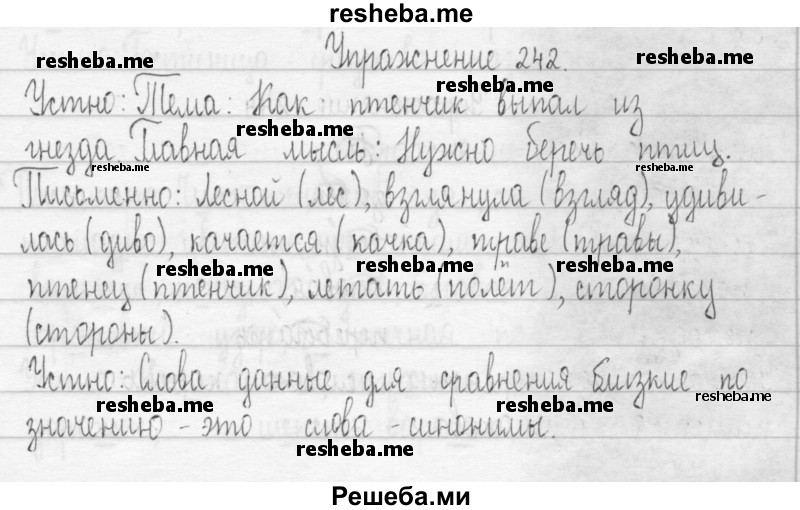 resheba.me
Упражнение 242.
resheba.me
resheba.me
Устно: Тема: Как птенчик выпал из
resheba.me
гнезда Главная мысль: Нужно беречь птиц.
resheba.me
resheba.me
resheba.me
Письменно: Лесной (лес), взглянула (взгляд), удиви-
лась (диво), качается (качка), траве (травы),
resheba.me
resheba.me
resheba.me
птенец (птенчик), летать (полёт), сторонку
(стороны).
Устно: Слова данные для сравнения близкие по
resheba.me
resheba.me
resheba.me
значению - это слова - синонимы.
resheba.me
Решеба.ми